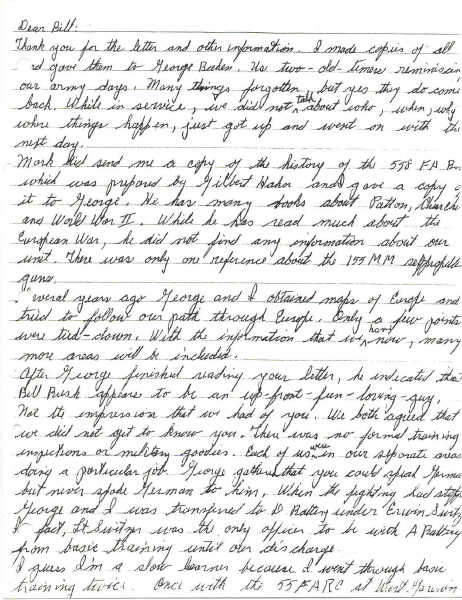 Dear Bill:
Thank you for the letter and other information. I made copies of all
d gave them to George Us two-old-timers reminiscin
our army days. Many things forgotten, but yes they do come
back. While in service, we did not talk about who, when, why
where things happen, just got up and went on with the
next day.
Mark did send me a copy of the history of the 558 FA Bn
which was prepared by Gilbert Hahn and gave a copy o
it to George. He has many books about Patton,
and World War II. While he has read much about the
European War, he did not find any information about our
unit. There was only one reference about the 155 MM selfpropell
guns.
veral years ago George and I obtained maps of Europe and
tried to follow our path through Europe. Only a few points
were tied-down. With the information that we have now, many
more areas will be included.
After George finished reading your letter, he indicated tha
Bill Rusk appears to be an up-front-fun-loving-guy.
Not the impression that we had of you. We both agreed that
we did not get to know you. There was no formal training
inspections or military goodies. Each of us were in our separate areas
doing a particular job. George gathers that you could speak Germa
but never spoke German to him. When the fighting had stopp
George and I was transferred to D Battery under Erwin Switz
I fact, Lt Switzer was the only officer to be with A Battery
from basic training until our discharge.
I guess I'm a slow learner because I went through basic
training twice. Once with the 55 FARC at West